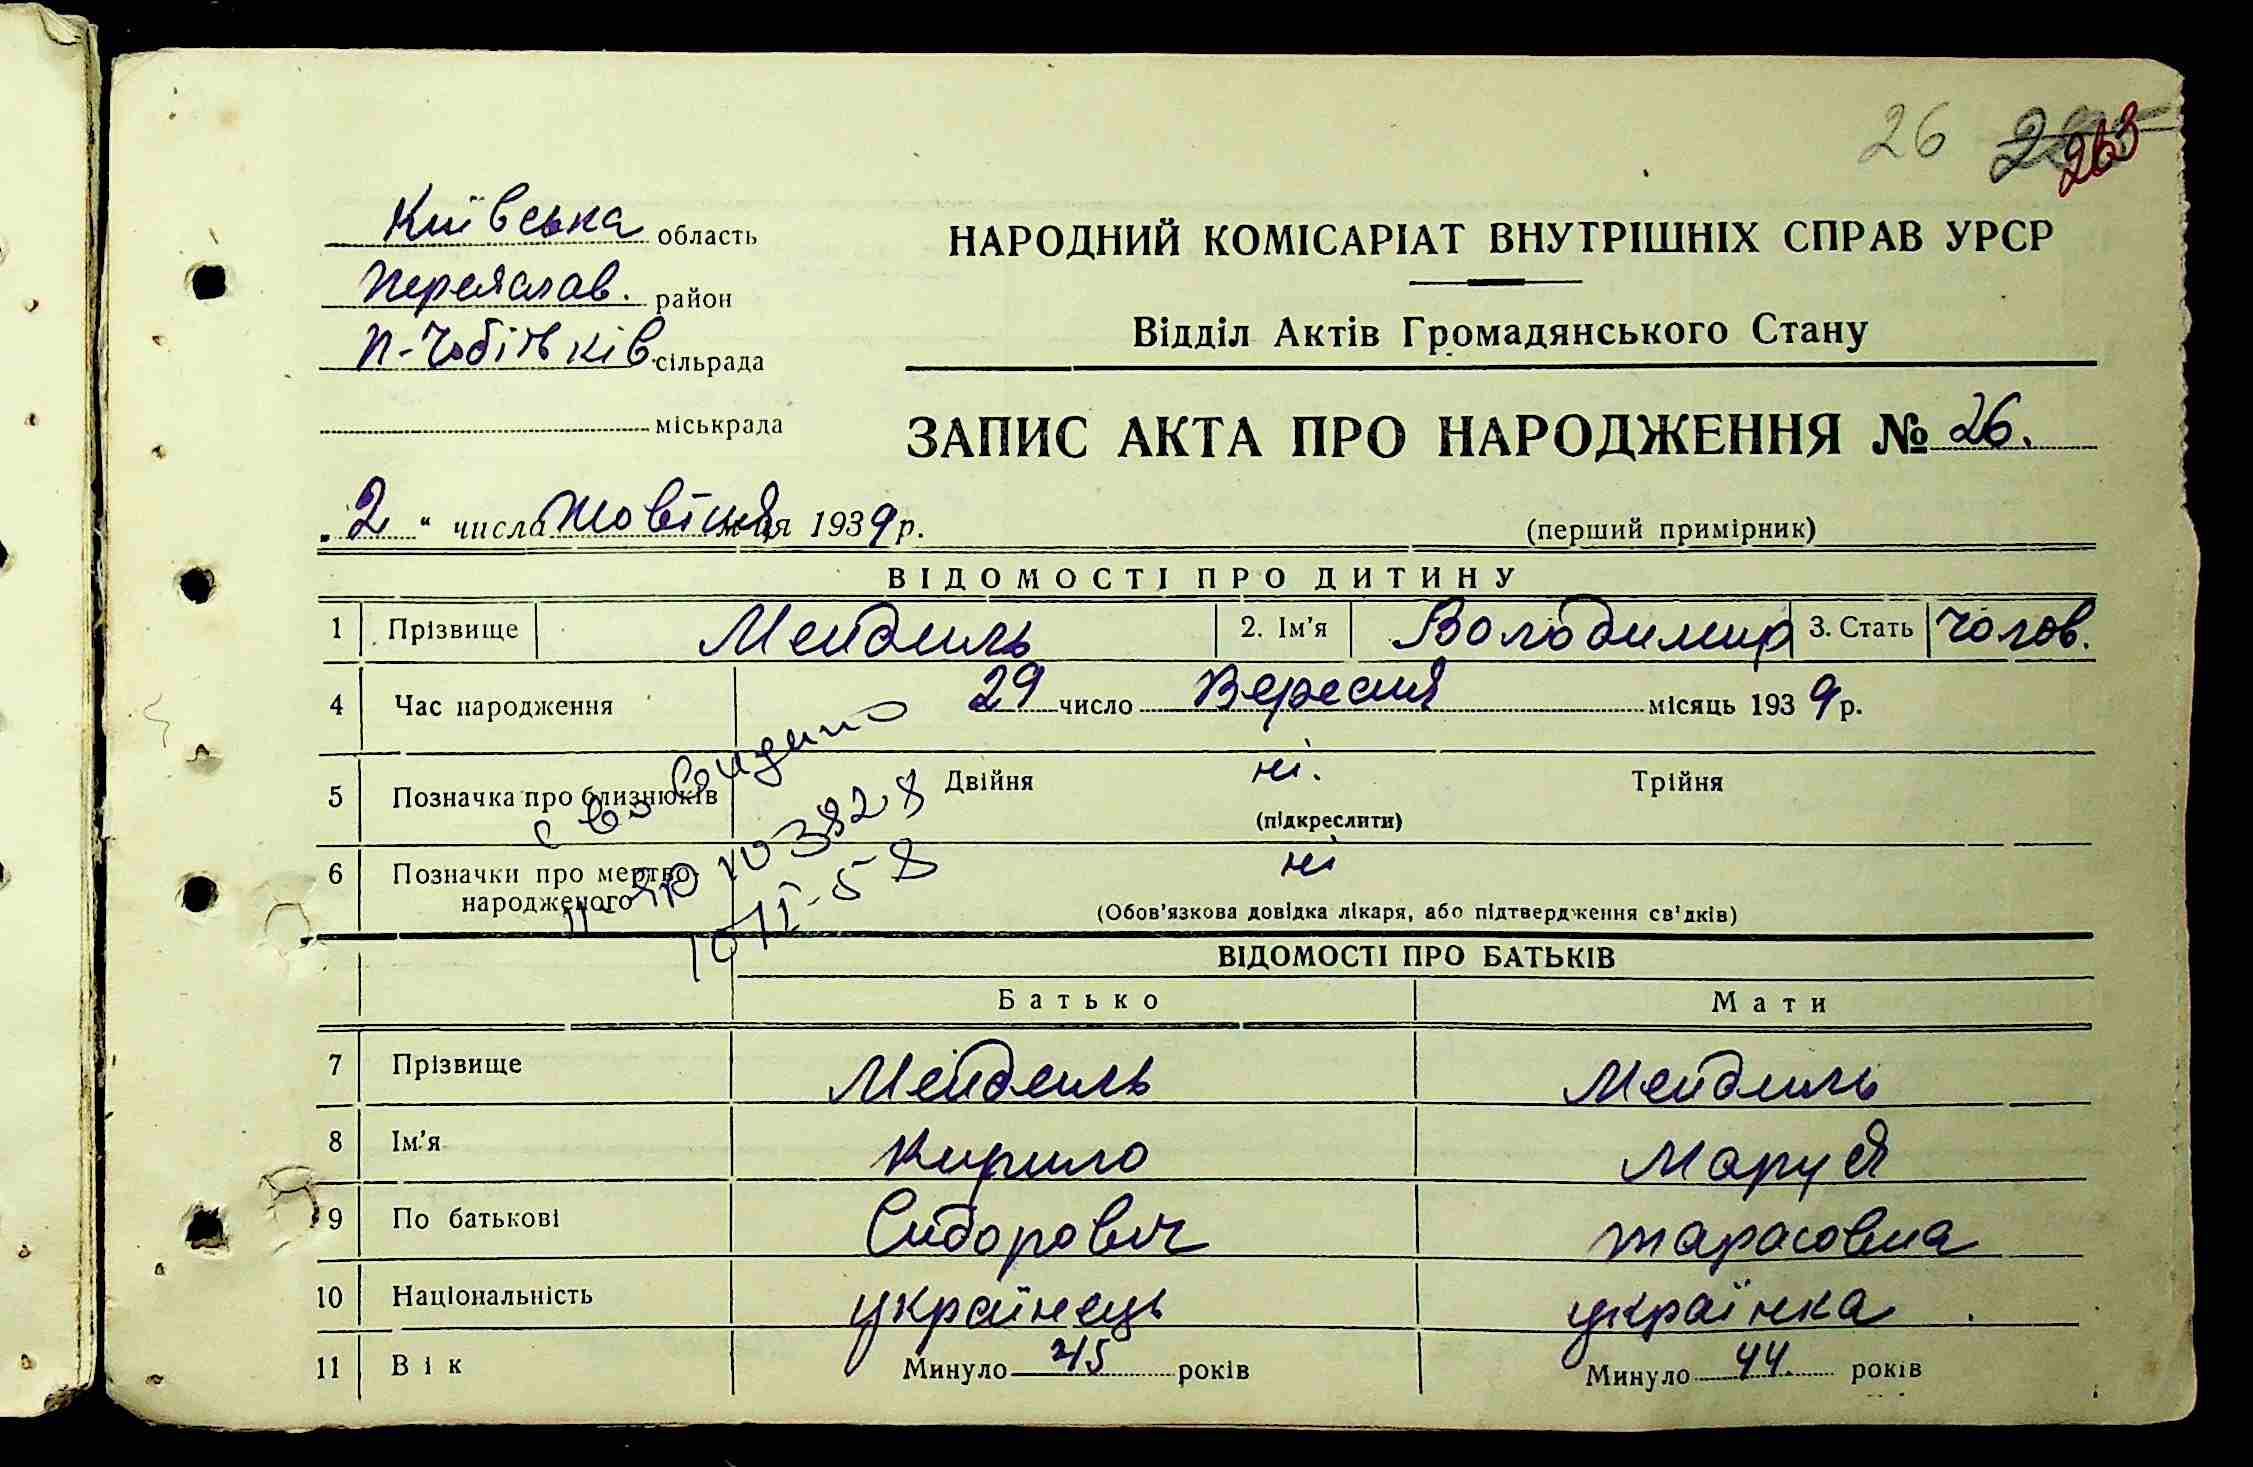 26 263
Київська область
Переяслав. район
П-Чобітьків сільрада
міськрада
НАРОДНИЙ КОМІСАРІАТ ВНУТРІШНІХ СПРАВ УРСР
Відділ Актів Громадянського Стану
ЗАПИС АКТА ПРО НАРОДЖЕННЯ № 26.
„2“ числа Жовтня м-ця 1939 р.
(перший примірник)
ВІДОМОСТІ ПРО ДИТИНУ
1 Прізвище Мейдиль 2. Ім'я Володимир 3. Стать Чолов.
4 Час народження 29 число Вересня місяць 1939 р.
5 Позначка про близнюків Двійня ні. Трійня
(підкреслити)
6 Позначки про мертво- ні
народженого (Обов'язкова довідка лікаря, або підтвердження св'дків)
103828
10/II-58
ВІДОМОСТІ ПРО БАТЬКІВ
Батько Мати
7 Прізвище Мейдиль Мейдиль
8 Ім'я Кирило Маруся
9 По батькові Сидорович Тарасовна
10 Національність українець українка
11 Вік Минуло 45 років Минуло 44 років